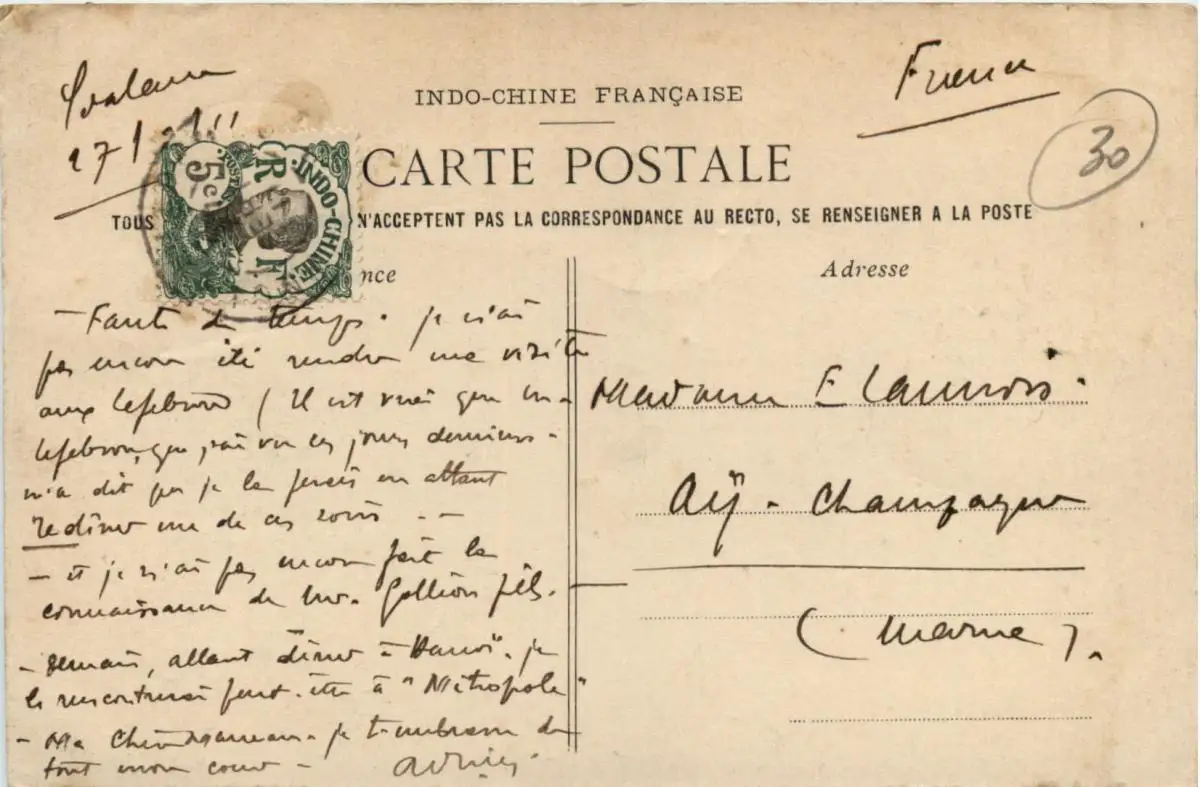 27-1-11
France
INDO-CHINE FRANÇAISE
30
CARTE POSTALE
5c POSTES INDO-CHINE R F
TOUS N'ACCEPTENT PAS LA CORRESPONDANCE AU RECTO, SE RENSEIGNER A LA POSTE
nce
Adresse
— Faute de temps. je n'ai
pas encore été rendre une visite
aux Lefebvre (Il est vrai que
Lefebvre, que j'ai vu ces jours derniers -
m'a dit que je la ferais en allant
redîner un de ces soirs . - —
— et je n'ai pas encore fait la
connaissance de Mr. fils. —
- demain, allant dîner à Hanoï. je
le rencontrerai peut-être à "Métropole"
- Ma je t'embrasse de
tout mon cœur —
Madame E Launois.
Aÿ - Champagne
(Marne).